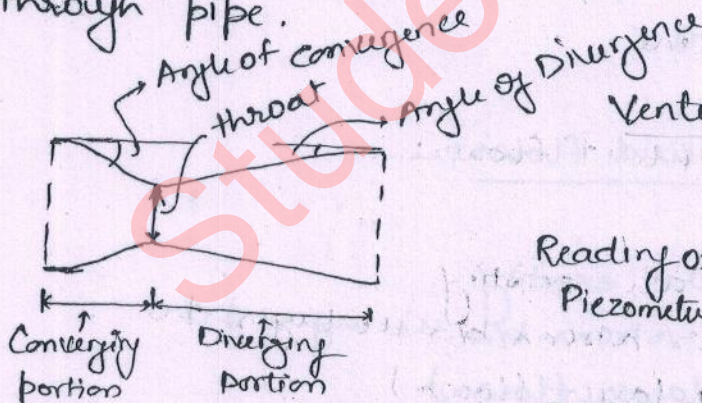 through pipe.
Angle of convergence
throat
Angle of Divergence
Vent
Reading o
Piezomet
Converging
portion
Diverging
portion
Stude